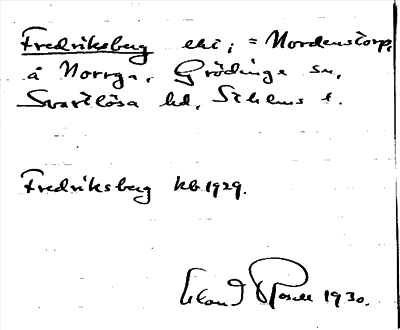 Fredriksberg ehi; = Nordenstorp,
å Norrga, Grödinge sn,
Svartlösa hd, Sthlms l.
Fredriksberg kb 1929.
1930.